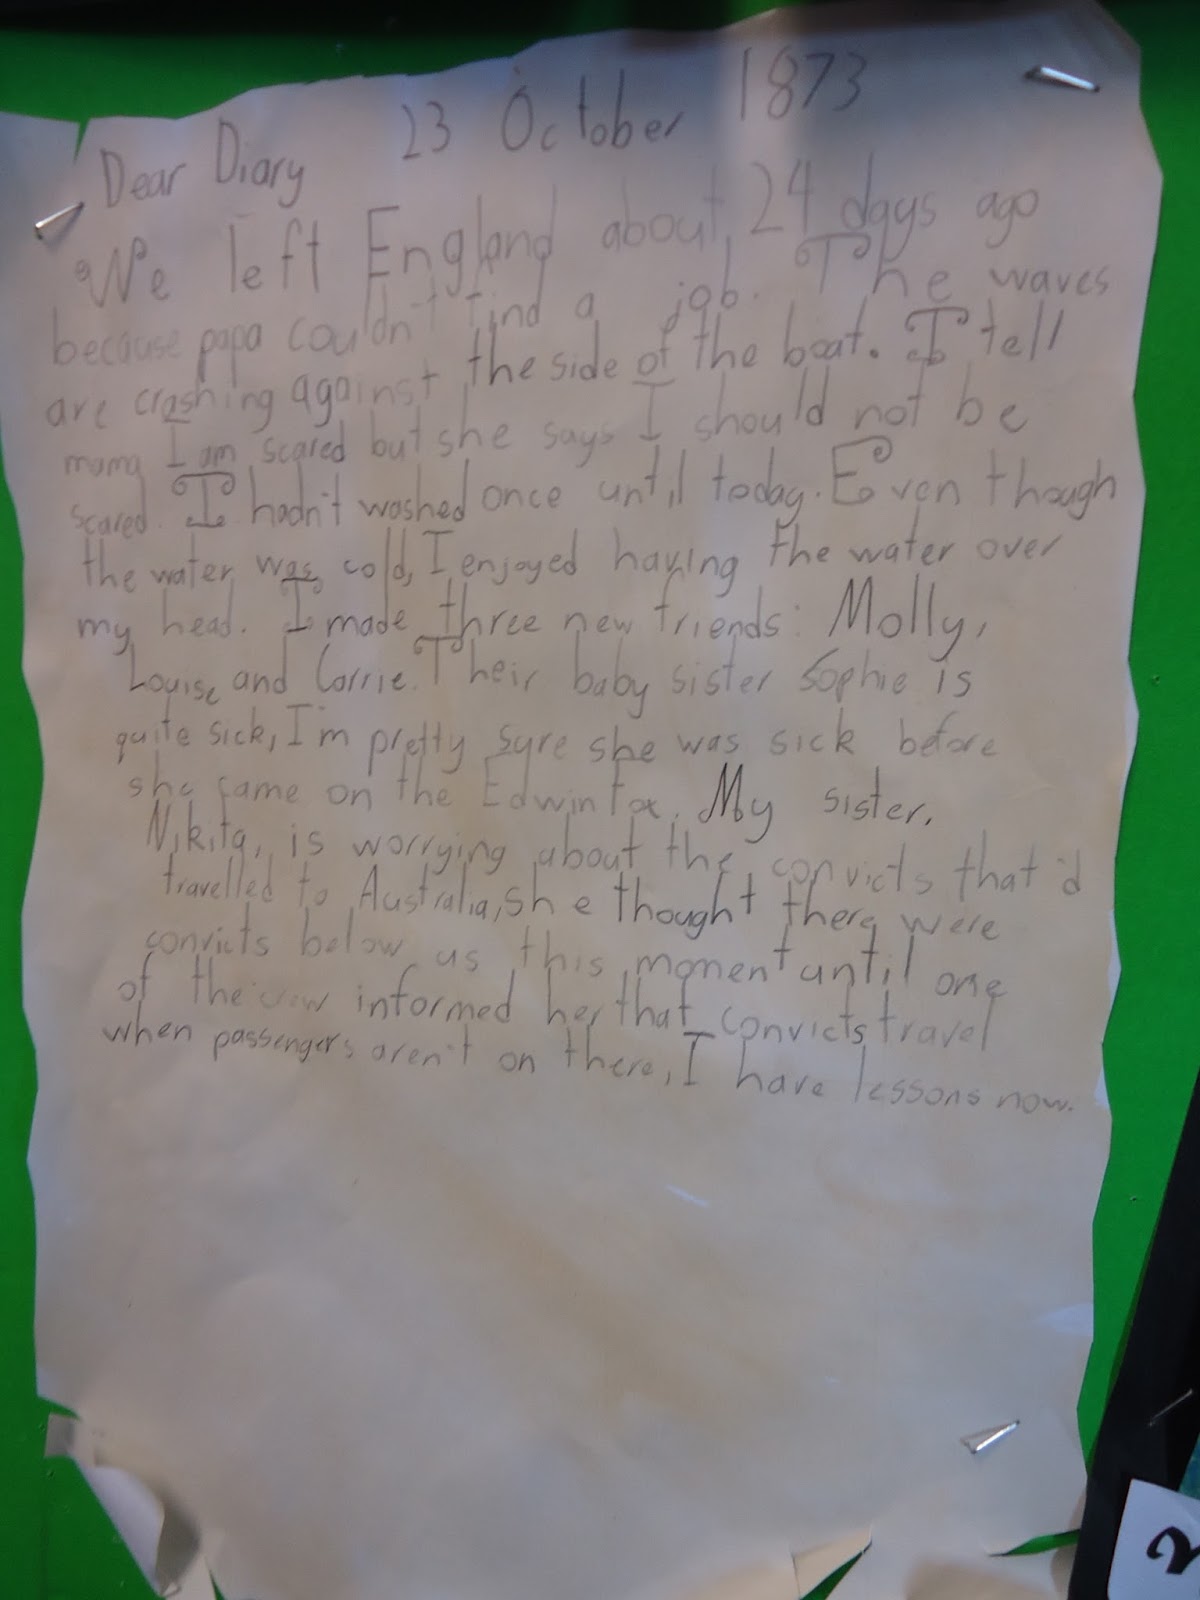 23 October 1873
Dear Diary
We left England about 24 days ago
because papa couldn't find a job. The waves
are crashing against the side of the boat. I tell
mama I am scared but she says I should not be
scared. I hadn't washed once until today. Even though
the water was cold, I enjoyed having the water over
my head. I made three new friends: Molly,
Louise and Corrie. Their baby sister Sophie is
quite sick, I'm pretty sure she was sick before
she came on the Edwin Fox. My sister,
Nikita, is worrying about the convicts that'd
travelled to Australia, she thought there were
convicts below us this moment until one
of the crew informed her that convicts travel
when passengers aren't on there, I have lessons now.
2